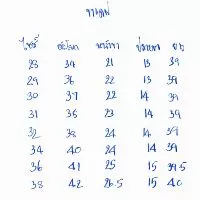 ไซส์ สะโพก ต้นขา ปลายขา ยาว
28 34 21 13 39
29 36 22 13 39
30 37 22 14 39
31 38 23 14 39
32 38 24 14 39
34 40 24 14 39
36 41 25 15 39.5
38 42 26.5 15 40